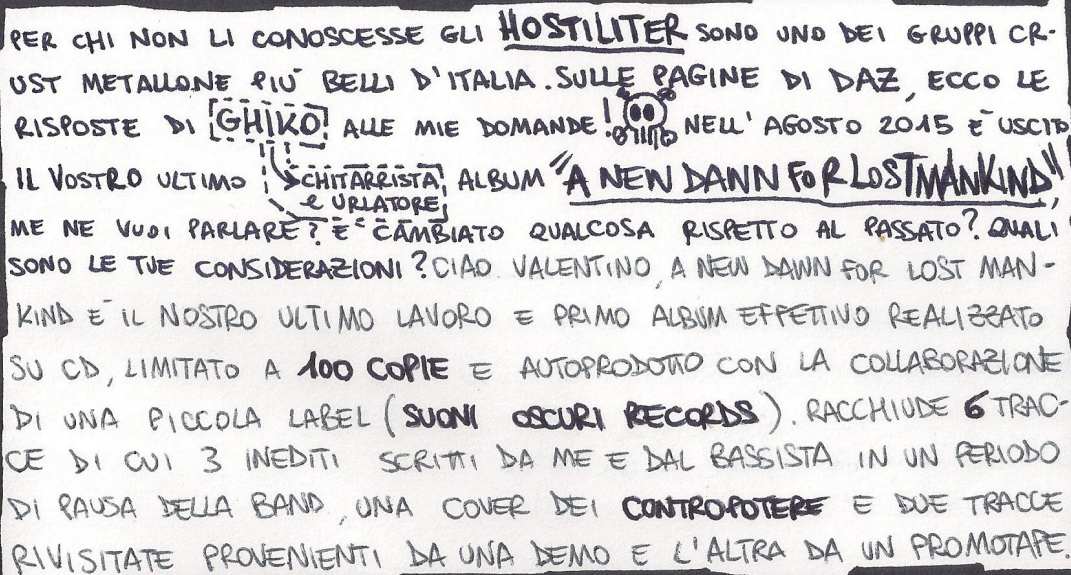 PER CHI NON LI CONOSCESSE GLI HOSTILITER SONO UNO DEI GRUPPI CR-
UST METALLONE PIÙ BELLI D'ITALIA. SULLE PAGINE DI DAZ, ECCO LE
RISPOSTE DI GHIKO ALLE MIE DOMANDE! NELL'AGOSTO 2015 È USCITO
IL VOSTRO ULTIMO ALBUM "A NEW DANN FOR LOST MANKIND",
CHITARRISTA
e URLATORE
ME NE VUOI PARLARE? È CAMBIATO QUALCOSA RISPETTO AL PASSATO? QUALI
SONO LE TUE CONSIDERAZIONI? CIAO VALENTINO, A NEW DAWN FOR LOST MAN-
KIND È IL NOSTRO ULTIMO LAVORO E PRIMO ALBUM EFFETTIVO REALIZZATO
SU CD, LIMITATO A 100 COPIE E AUTOPRODOTTO CON LA COLLABORAZIONE
DI UNA PICCOLA LABEL (SUONI OSCURI RECORDS). RACCHIUDE 6 TRAC-
CE DI CUI 3 INEDITI SCRITTI DA ME E DAL BASSISTA IN UN PERIODO
DI PAUSA DELLA BAND, UNA COVER DEI CONTROPOTERE E DUE TRACCE
RIVISITATE PROVENIENTI DA UNA DEMO E L'ALTRA DA UN PROMOTAPE.